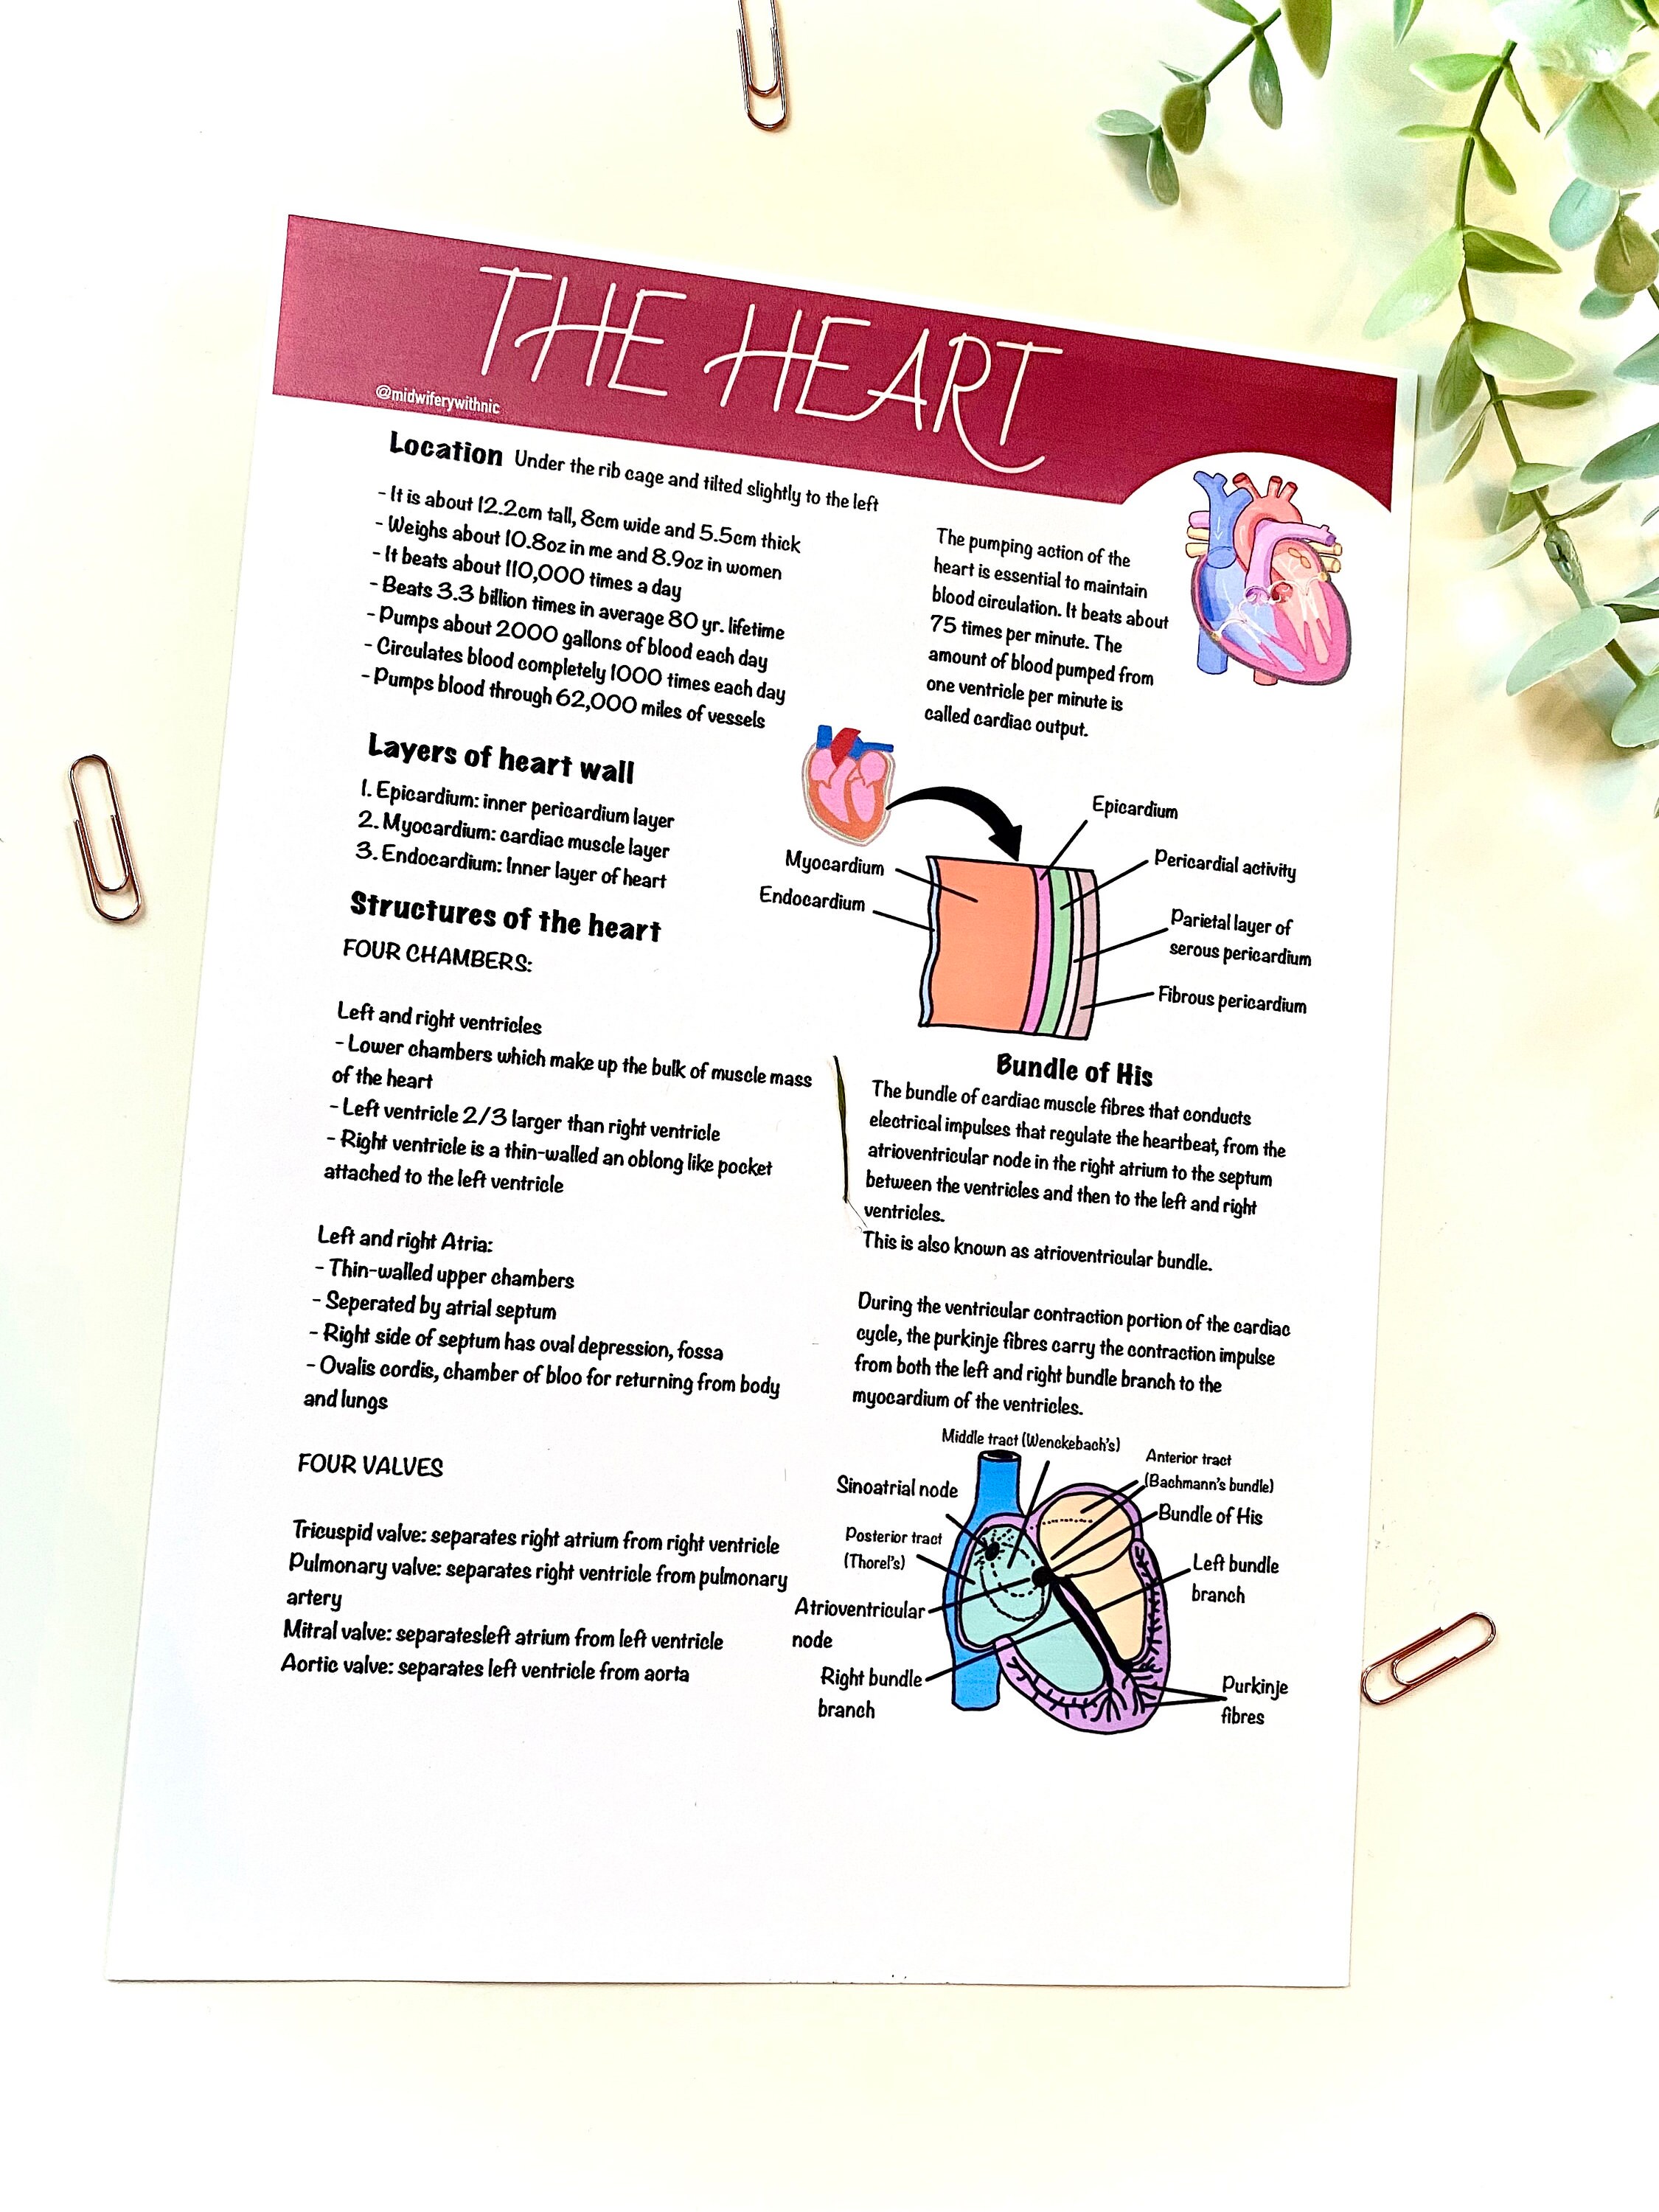 THE HEART
@midwiferywithnic
Location Under the rib cage and tilted slightly to the left
- It is about 12.2cm tall, 8cm wide and 5.5cm thick
- Weighs about 10.8oz in me and 8.9oz in women
- It beats about 110,000 times a day
- Beats 3.3 billion times in average 80 yr. lifetime
- Pumps about 2000 gallons of blood each day
- Circulates blood completely 1000 times each day
- Pumps blood through 62,000 miles of vessels
The pumping action of the
heart is essential to maintain
blood circulation. It beats about
75 times per minute. The
amount of blood pumped from
one ventricle per minute is
called cardiac output.
Layers of heart wall
1. Epicardium: inner pericardium layer
2. Myocardium: cardiac muscle layer
3. Endocardium: Inner layer of heart
Epicardium
Pericardial activity
Myocardium
Endocardium
Parietal layer of
serous pericardium
Fibrous pericardium
Structures of the heart
FOUR CHAMBERS:
Left and right ventricles
- Lower chambers which make up the bulk of muscle mass
of the heart
- Left ventricle 2/3 larger than right ventricle
- Right ventricle is a thin-walled an oblong like pocket
attached to the left ventricle
Left and right Atria:
- Thin-walled upper chambers
- Seperated by atrial septum
- Right side of septum has oval depression, fossa
- Ovalis cordis, chamber of bloo for returning from body
and lungs
FOUR VALVES
Tricuspid valve: separates right atrium from right ventricle
Pulmonary valve: separates right ventricle from pulmonary
artery
Mitral valve: separatesleft atrium from left ventricle
Aortic valve: separates left ventricle from aorta
Bundle of His
The bundle of cardiac muscle fibres that conducts
electrical impulses that regulate the heartbeat, from the
atrioventricular node in the right atrium to the septum
between the ventricles and then to the left and right
ventricles.
This is also known as atrioventricular bundle.
During the ventricular contraction portion of the cardiac
cycle, the purkinje fibres carry the contraction impulse
from both the left and right bundle branch to the
myocardium of the ventricles.
Middle tract (Wenckebach's)
Anterior tract
(Bachmann's bundle)
Sinoatrial node
Bundle of His
Posterior tract
(Thorel's)
Left bundle
branch
Atrioventricular
node
Right bundle
branch
Purkinje
fibres